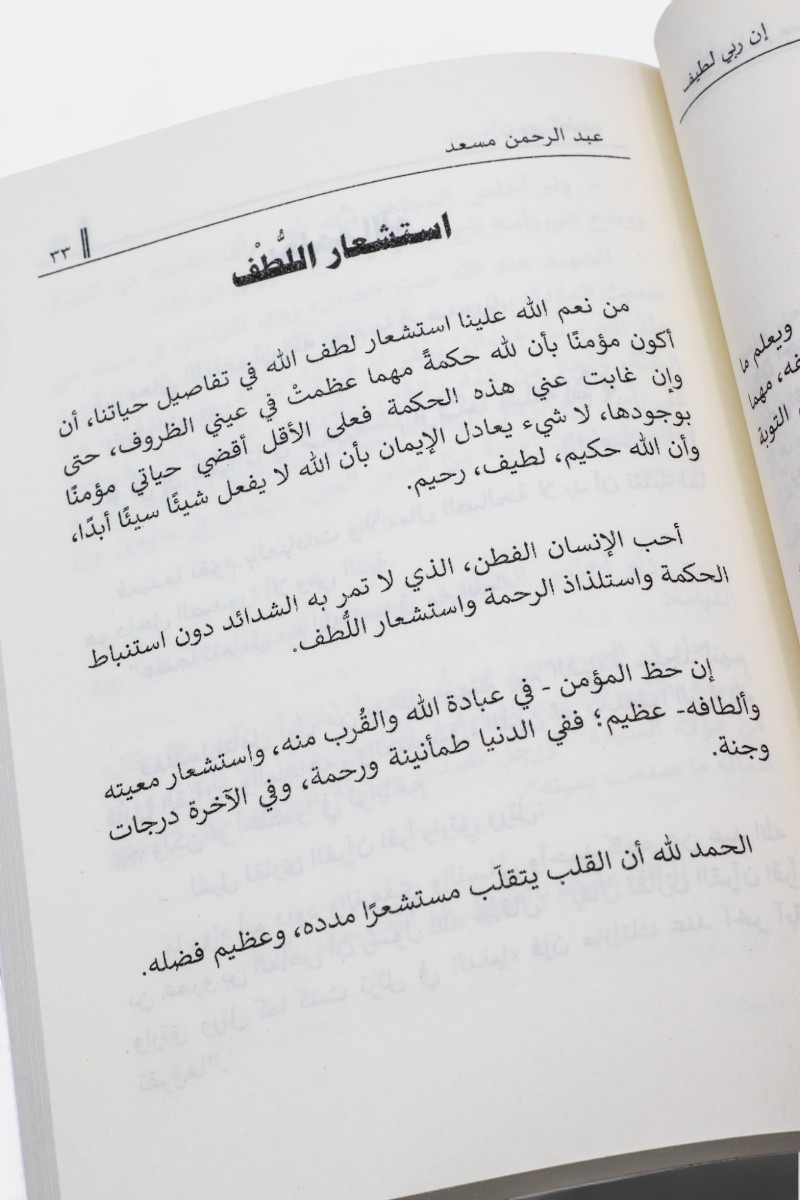 إن ربي لطيف
ويعلم ما
مهما
التوبة
عبد الرحمن مسعد
٣٣
استشعار اللُّطْف
من نعم الله علينا استشعار لطف الله في تفاصيل حياتنا، أن
أكون مؤمنًا بأن لله حكمةً مهما عظمتْ في عيني الظروف، حتى
وإن غابت عني هذه الحكمة فعلى الأقل أقضي حياتي مؤمنًا
بوجودها، لا شيء يعادل الإيمان بأن الله لا يفعل شيئًا سيئًا أبدًا،
وأن الله حكيم، لطيف، رحيم.
أحب الإنسان الفطن، الذي لا تمر به الشدائد دون استنباط
الحكمة واستلذاذ الرحمة واستشعار اللُّطف.
إن حظ المؤمن - في عبادة الله والقُرب منه، واستشعار معيته
وألطافه- عظيم؛ ففي الدنيا طمأنينة ورحمة، وفي الآخرة درجات
وجنة.
الحمد لله أن القلب يتقلّب مستشعرًا مدده، وعظيم فضله.